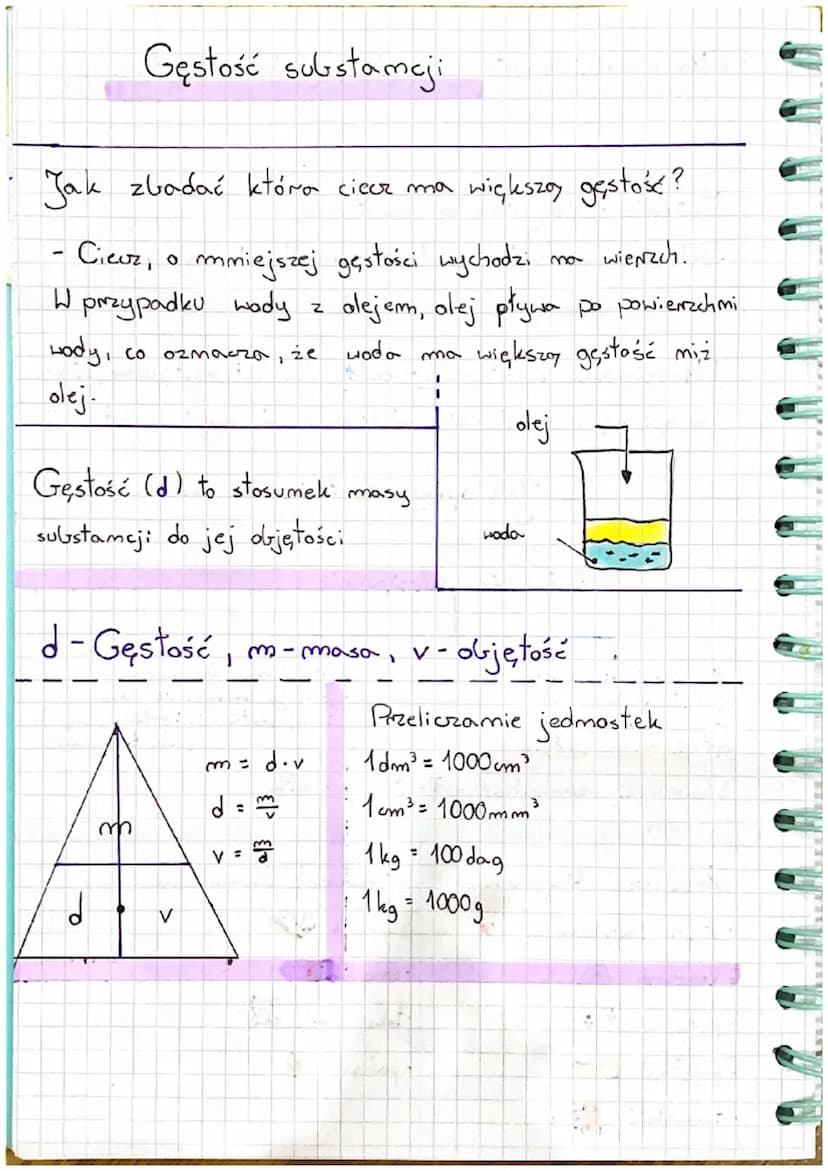 Gęstość substancji
Jak zbadać która ciecz ma większą gęstość?
- Ciecz, o mniejszej gęstości wychodzi na wierzch.
W przypadku wody z olejem, olej pływa po powierzchni
wody, co oznacza, że woda ma większą gęstość niż
olej.
olej
woda
Gęstość (d) to stosunek masy
substancji do jej objętości
d - Gęstość, m - masa, v - objętość
m
d
v
m = d·v
d = m/v
v = m/d
Przeliczanie jednostek
1dm³ = 1000cm³
1cm³ = 1000mm³
1kg = 100dag
1kg = 1000g